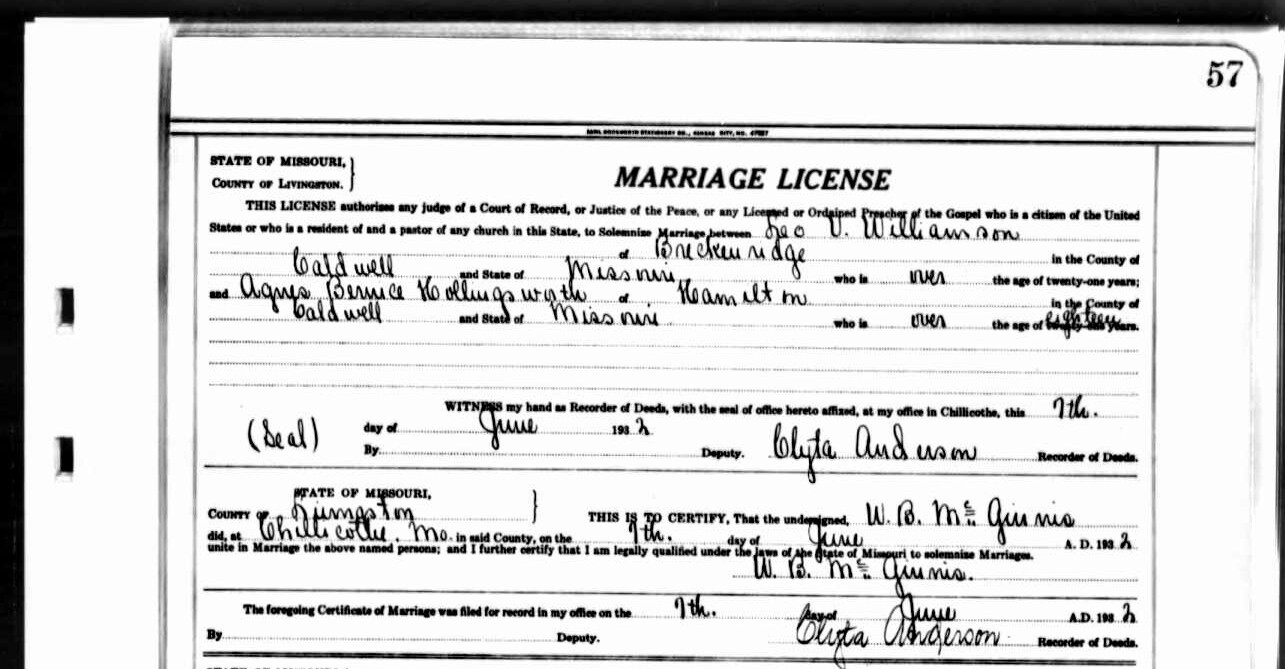 57
STATE OF MISSOURI,
COUNTY OF LIVINGSTON.
MARRIAGE LICENSE
THIS LICENSE authorizes any judge of a Court of Record, or Justice of the Peace, or any Licensed or Ordained Preacher of the Gospel who is a citizen of the United
States or who is a resident of and a pastor of any church in this State, to Solemnize Marriage between Leo V. Williamson
of Breckenridge in the County of
Caldwell and State of Missouri who is over the age of twenty-one years;
and Agnes Bernice Hollingsworth of Hamilton in the County of
Caldwell and State of Missouri who is over the age of twenty-one years. eighteen
WITNESS my hand as Recorder of Deeds, with the seal of office hereto affixed, at my office in Chillicothe, this 7th.
(Seal) day of June 1932
By Deputy. Clyta Anderson Recorder of Deeds.
STATE OF MISSOURI,
COUNTY OF Livingston THIS IS TO CERTIFY, That the undersigned, W. B. McGinnis
did, at Chillicothe. Mo. in said County, on the 7th. day of June A. D. 1932
unite in Marriage the above named persons; and I further certify that I am legally qualified under the laws of the State of Missouri to solemnize Marriages.
W. B. McGinnis.
The foregoing Certificate of Marriage was filed for record in my office on the 7th. day of June A.D. 1932
By Deputy. Clyta Anderson Recorder of Deeds.